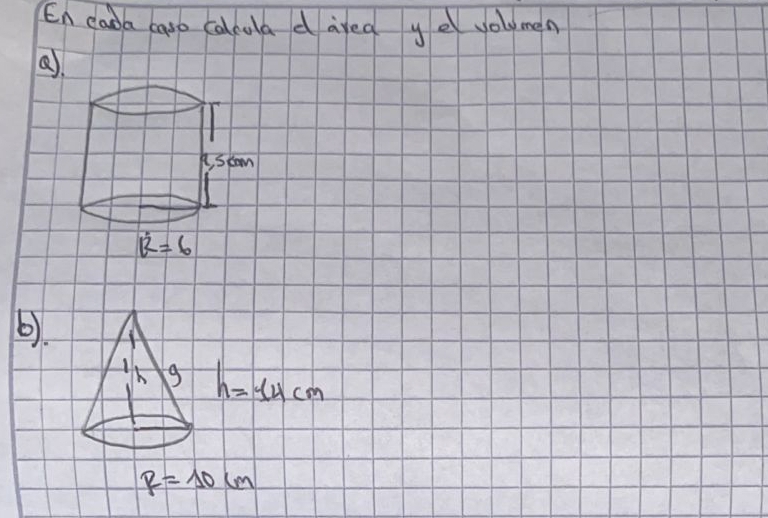 En cada caso calcula el área y el volumen
a).
R=6
b).
h g h=14 cm
R=10 cm